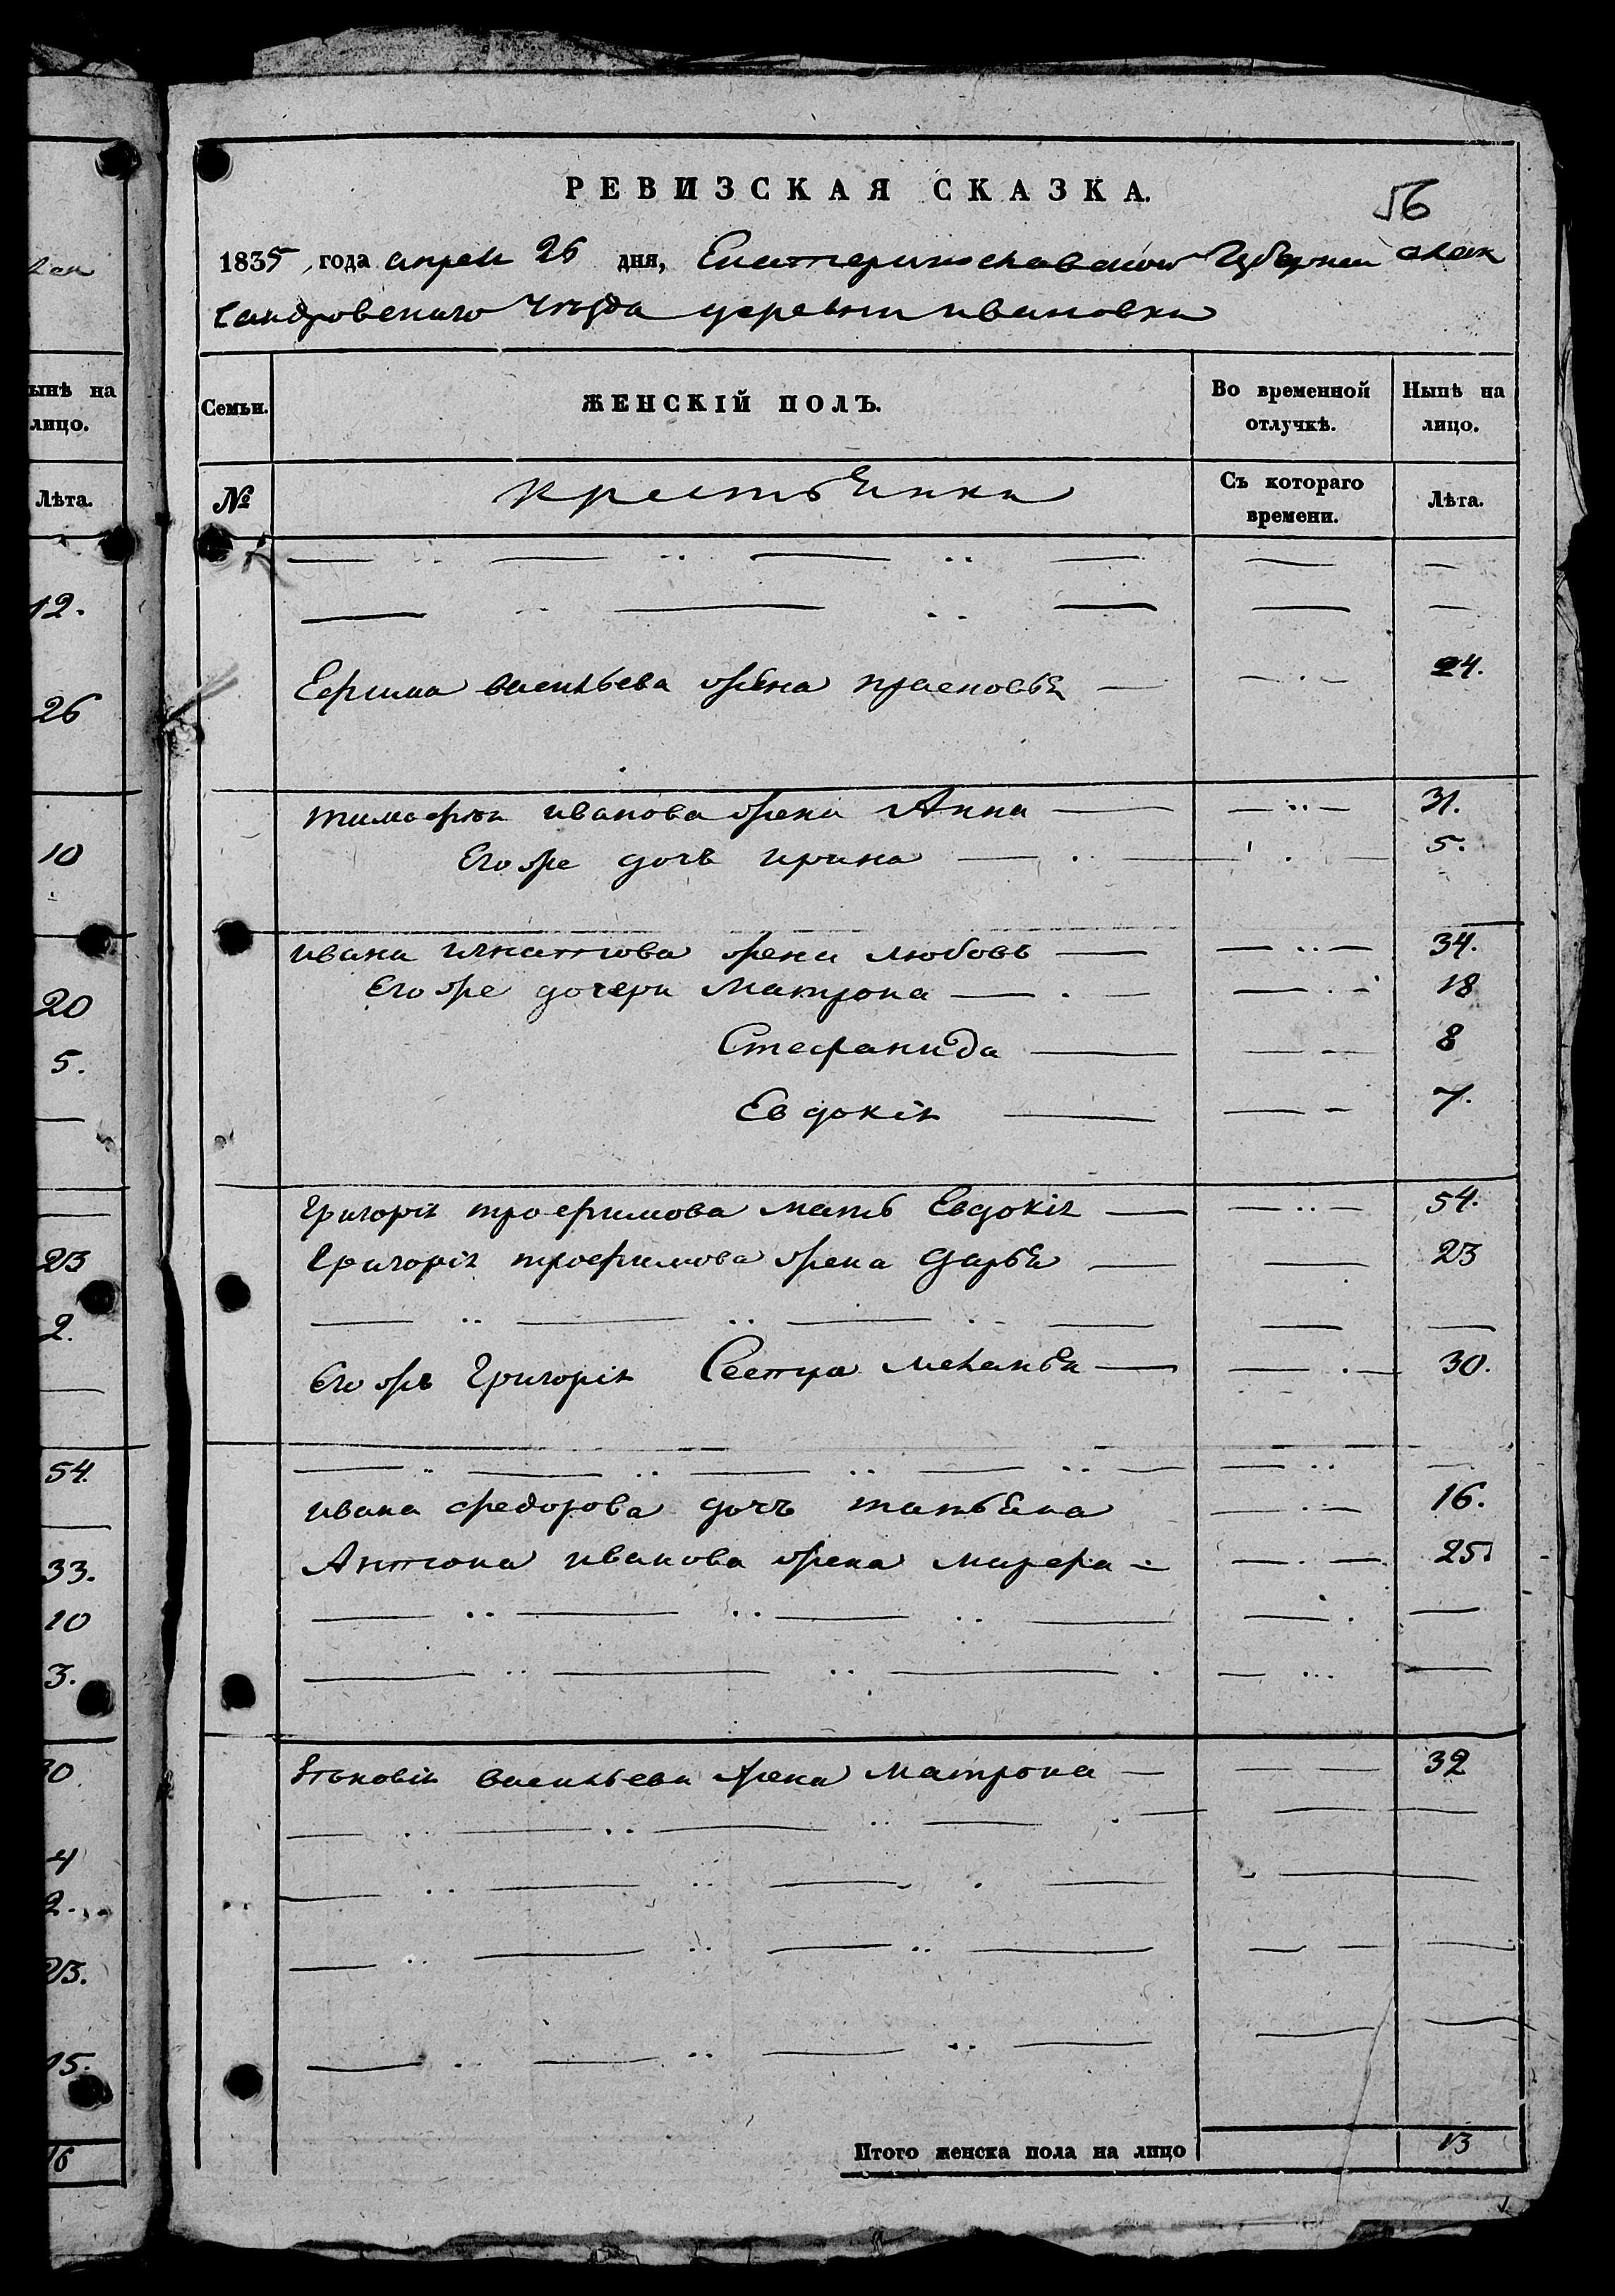 ен
ынѣ на
лицо.
Лѣта.
12.
26
10
20
5.
23
2.
54
33.
10
3.
30
4
2.
23.
15.
16
РЕВИЗСКАЯ СКАЗКА.
56
1835 года апреля 26 дня, Екатеринославской Губернии алек
сандровского уѣзда деревни ивановки
Семьи. ЖЕНСКІЙ ПОЛЪ. Во временной отлучкѣ. Нынѣ на лицо.
№ крестьянки Съ котораго времени. Лѣта.
Ефима васильева жена прасковья 24.
тимофѣя иванова жена Анна 31.
Его же дочь ирина 5.
ивана игнатова жена любовь 34.
Его же дочери матрона 18
Стефанида 8
Евдокія 7.
Григорія трофимова мать Евдокія 54.
Григорія трофимова жена дарья 23
Его жъ Григорія Сестра меланья 30.
ивана федорова дочь татьяна 16.
Антона иванова жена марфа 25.
васильева жена матрона 32
Итого женска пола на лицо 13